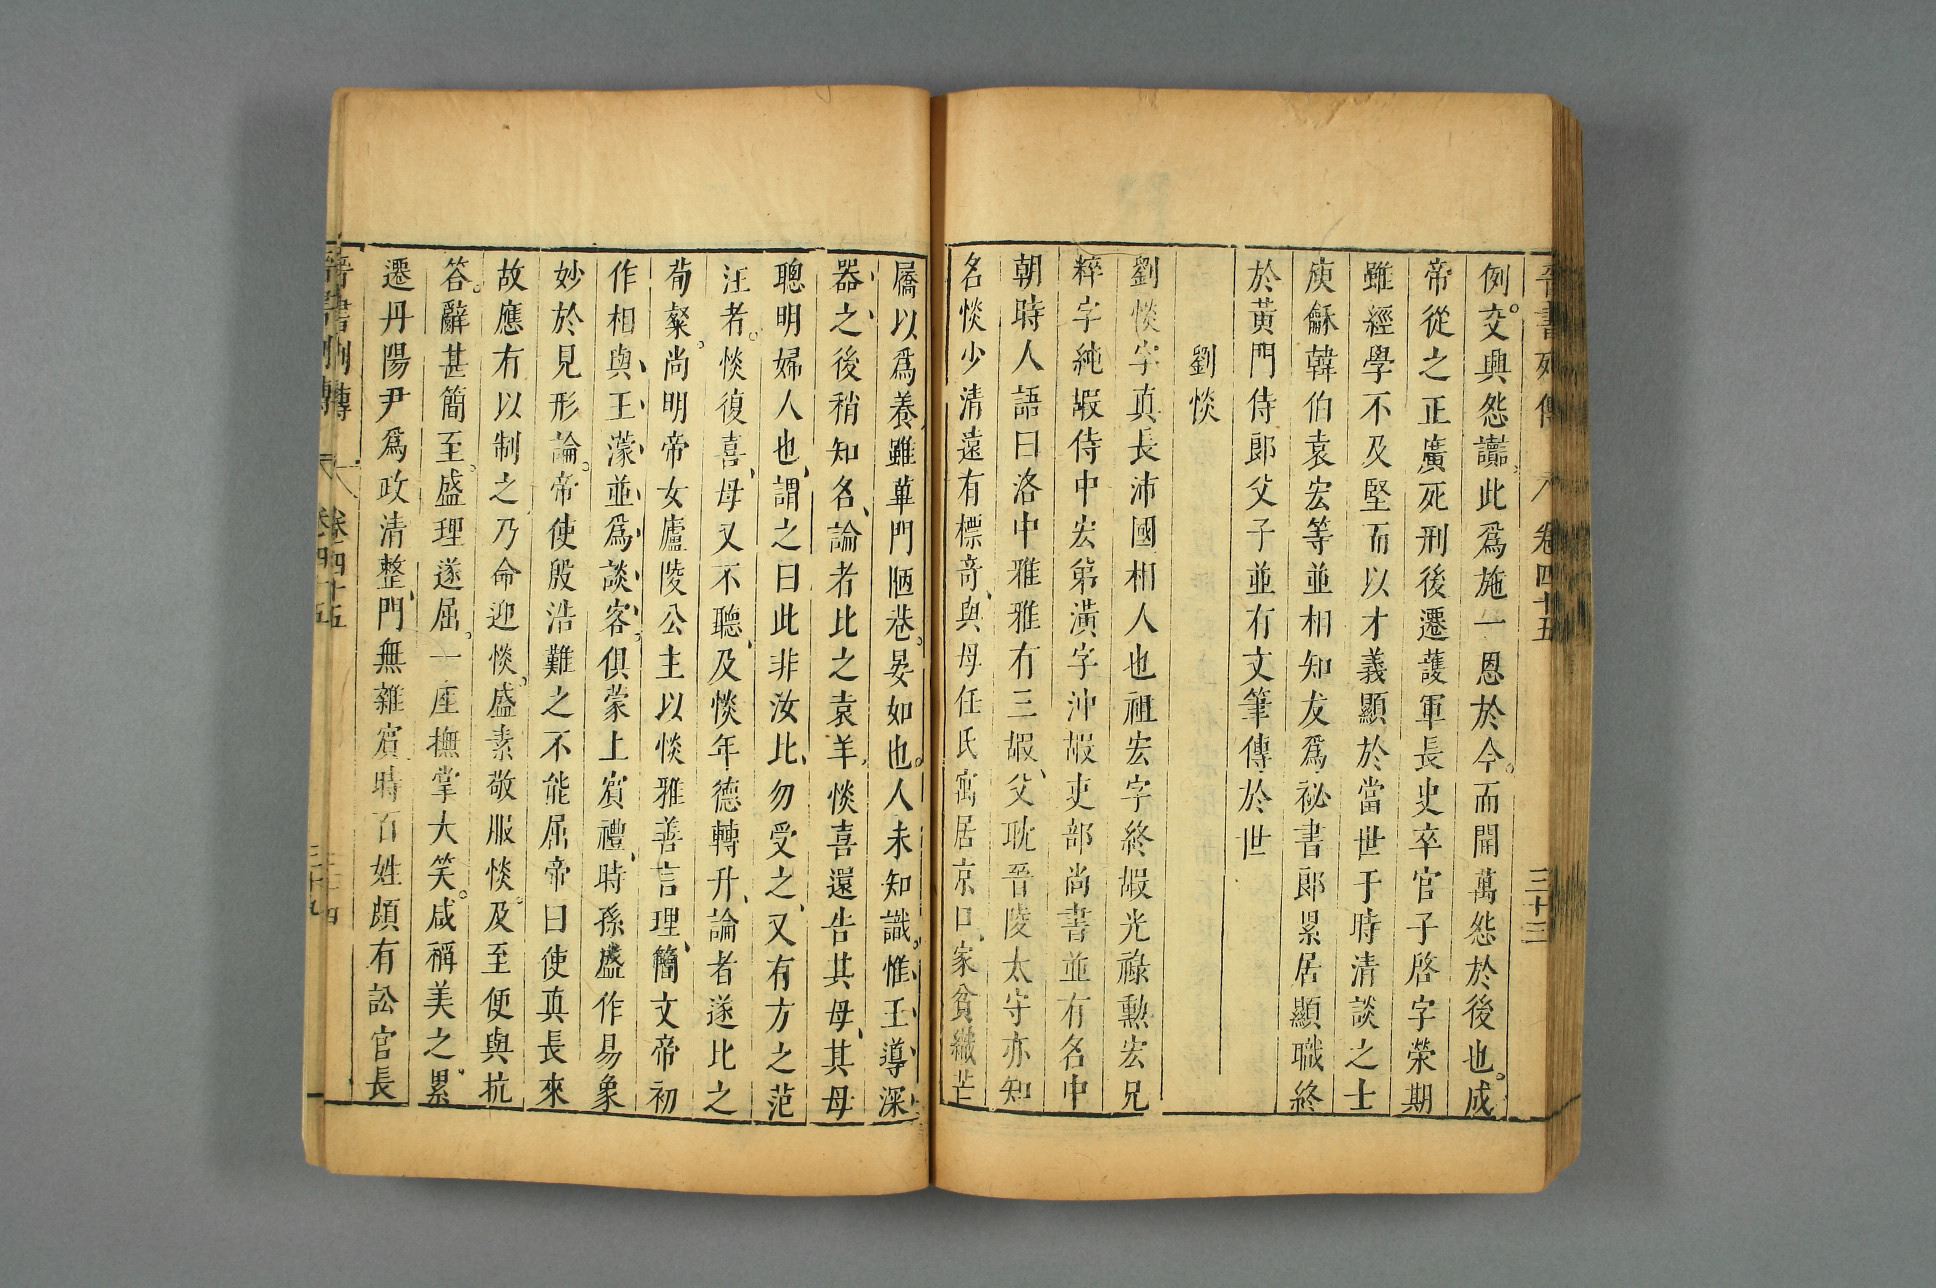 晉書列傳 卷四十五 三十三
例交興怨讟此爲施一恩於今而開萬怨於後也成
帝從之正廣死刑後遷護軍長史卒官子啓字榮期
雖經學不及堅而以才義顯於當世于時清談之士
庾龢韓伯袁宏等並相知友爲祕書郎累居顯職終
於黃門侍郎父子並有文筆傳於世
劉惔
劉惔字真長沛國相人也祖宏字終嘏光祿勳宏兄
粹字純嘏侍中宏弟潢字沖嘏吏部尚書並有名中
朝時人語曰洛中雅雅有三嘏父耽晉陵太守亦知
名惔少清遠有標奇與母任氏寓居京口家貧織芒
屩以爲養雖蓽門陋巷晏如也人未知識惟王導深
器之後稍知名論者比之袁羊惔喜還告其母其母
聰明婦人也謂之曰此非汝比勿受之又有方之范
汪者惔復喜母又不聽及惔年德轉升論者遂比之
荀粲尚明帝女廬陵公主以惔雅善言理簡文帝初
作相與王濛並爲談客俱蒙上賓禮時孫盛作易象
妙於見形論帝使殷浩難之不能屈帝曰使真長來
故應有以制之乃命迎惔盛素敬服惔及至便與抗
答辭甚簡至盛理遂屈一座撫掌大笑咸稱美之累
遷丹陽尹爲政清整門無雜賓時百姓頗有訟官長
晉書列傳 卷四十五